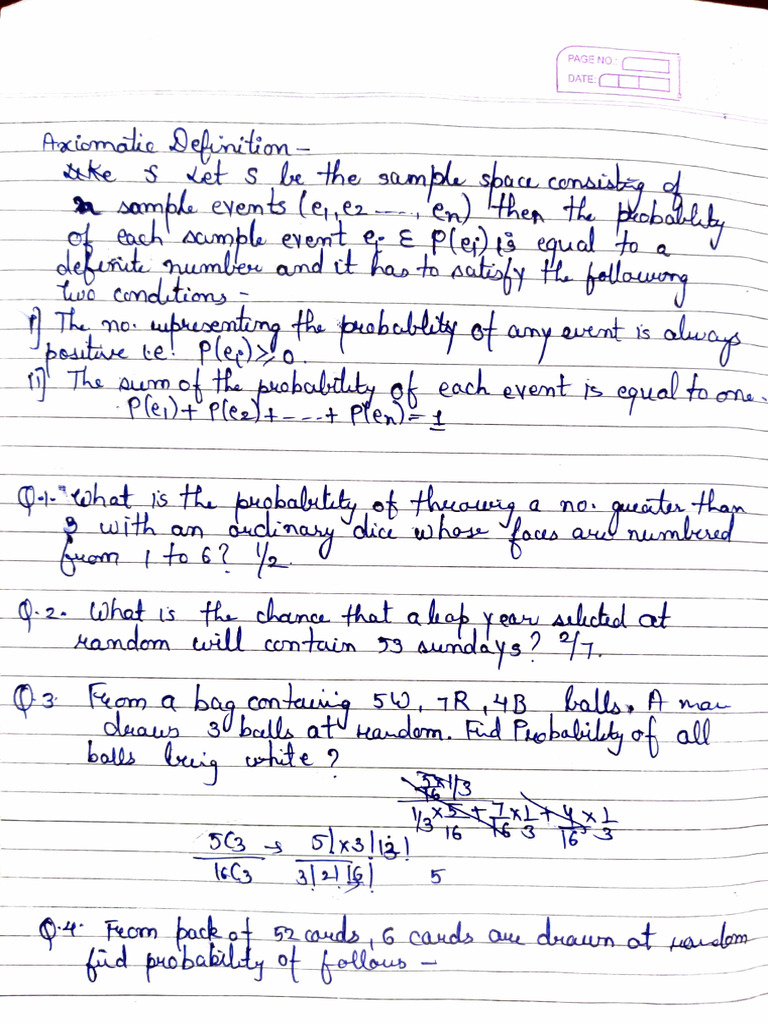 PAGE NO.:
DATE:
Axiomatic Definition -
S Let S be the sample space consisting of
n sample events (e1, e2 ...., en) then the probability
of each sample event ei ε P(ei) is equal to a
definite number and it has to satisfy the following
two conditions -
i] The no. representing the probablity of any event is always
positive i.e. P(ei) ≥ 0.
ii] The sum of the probability of each event is equal to one.
P(e1) + P(e2) + - - .. + P(en) = 1
Q.1. What is the probability of throwing a no. greater than
3 with an ordinary dice whose faces are numbered
from 1 to 6? 1/2.
Q.2. What is the chance that a leap year selected at
random will contain 53 sundays? 2/7.
Q.3. From a bag containing 5W, 7R, 4B balls. A man
draws 3 balls at random. Find Probability of all
balls being white?
5/16 x 1/3
1/3 x 5/16 + 7/16 x 1/3 + 4/16 x 1/3
5C3 → 5! x 3! 13!
16C3 3! 2! 16! 5
Q.4. From pack of 52 cards, 6 cards are drawn at random
find probability of follows -